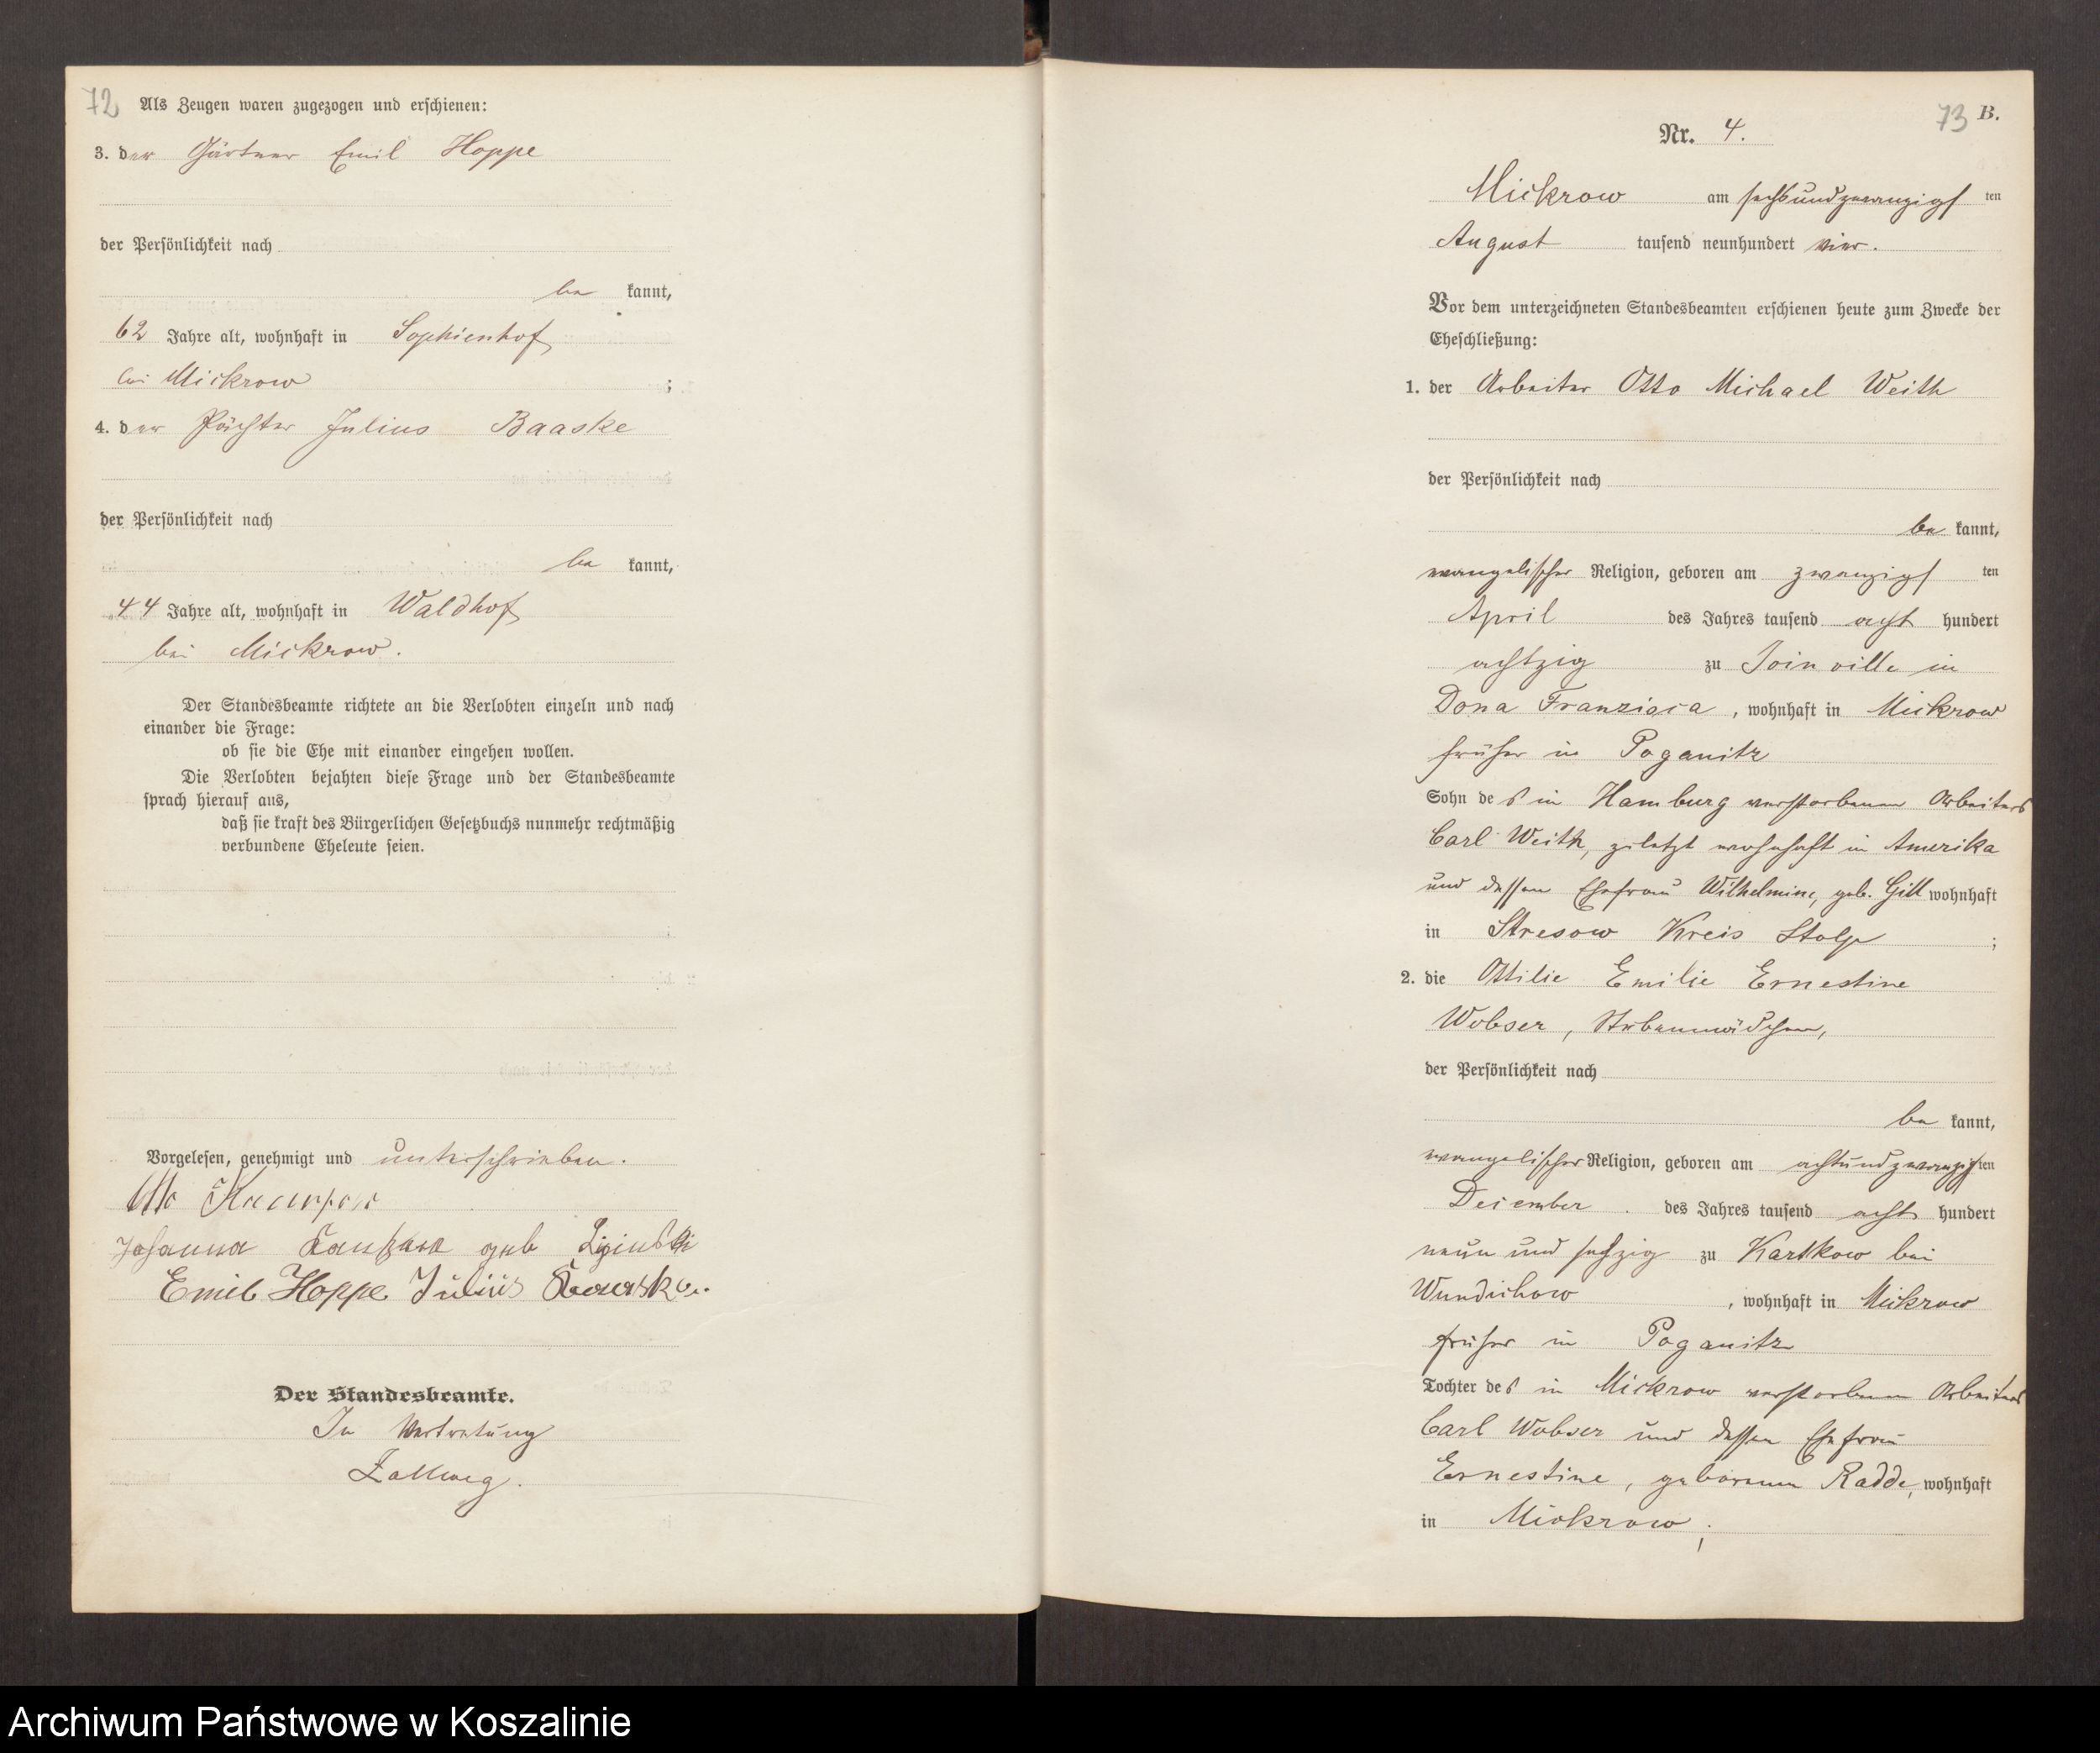 72
Als Zeugen waren zugezogen und erschienen:
3. der Gärtner Emil Hoppe
der Persönlichkeit nach
be kannt,
62 Jahre alt, wohnhaft in Sophienhof
bei Mickrow ;
4. der Pächter Julius Baaske
der Persönlichkeit nach
be kannt,
44 Jahre alt, wohnhaft in Waldhof
bei Mickrow.
Der Standesbeamte richtete an die Verlobten einzeln und nach
einander die Frage:
ob sie die Ehe mit einander eingehen wollen.
Die Verlobten bejahten diese Frage und der Standesbeamte
sprach hierauf aus,
daß sie kraft des Bürgerlichen Gesetzbuchs nunmehr rechtmäßig
verbundene Eheleute seien.
Vorgelesen, genehmigt und unterschrieben.
Otto
Johanna geb
Emil Hoppe Julius Baaske.
Der Standesbeamte.
In Vertretung
73 B.
Nr. 4.
Mickrow am sechsundzwanzigs ten
August tausend neunhundert vier.
Vor dem unterzeichneten Standesbeamten erschienen heute zum Zwecke der
Eheschließung:
1. der Arbeiter Otto Michael Weith
der Persönlichkeit nach
be kannt,
evangelischer Religion, geboren am zwanzigs ten
April des Jahres tausend acht hundert
achtzig zu Joinville in
Dona Franzisca, wohnhaft in Mickrow
früher in Poganitz
Sohn des in Hamburg verstorbenen Arbeiters
Carl Weith, zuletzt wohnhaft in Amerika
und dessen Ehefrau Wilhelmine, geb. Gill wohnhaft
in Stresow Kreis Stolp ;
2. die Ottilie Emilie Ernestine
Wobser, Stubenmädchen,
der Persönlichkeit nach
be kannt,
evangelischer Religion, geboren am achtundzwanzigs ten
Dezember des Jahres tausend acht hundert
neun und sechzig zu Kartkow bei
Wundichow, wohnhaft in Mickrow
früher in Poganitz
Tochter des in Mickrow verstorbenen Arbeiters
Carl Wobser und dessen Ehefrau
Ernestine, geborenen Radde, wohnhaft
in Mickrow ;
Archiwum Państwowe w Koszalinie